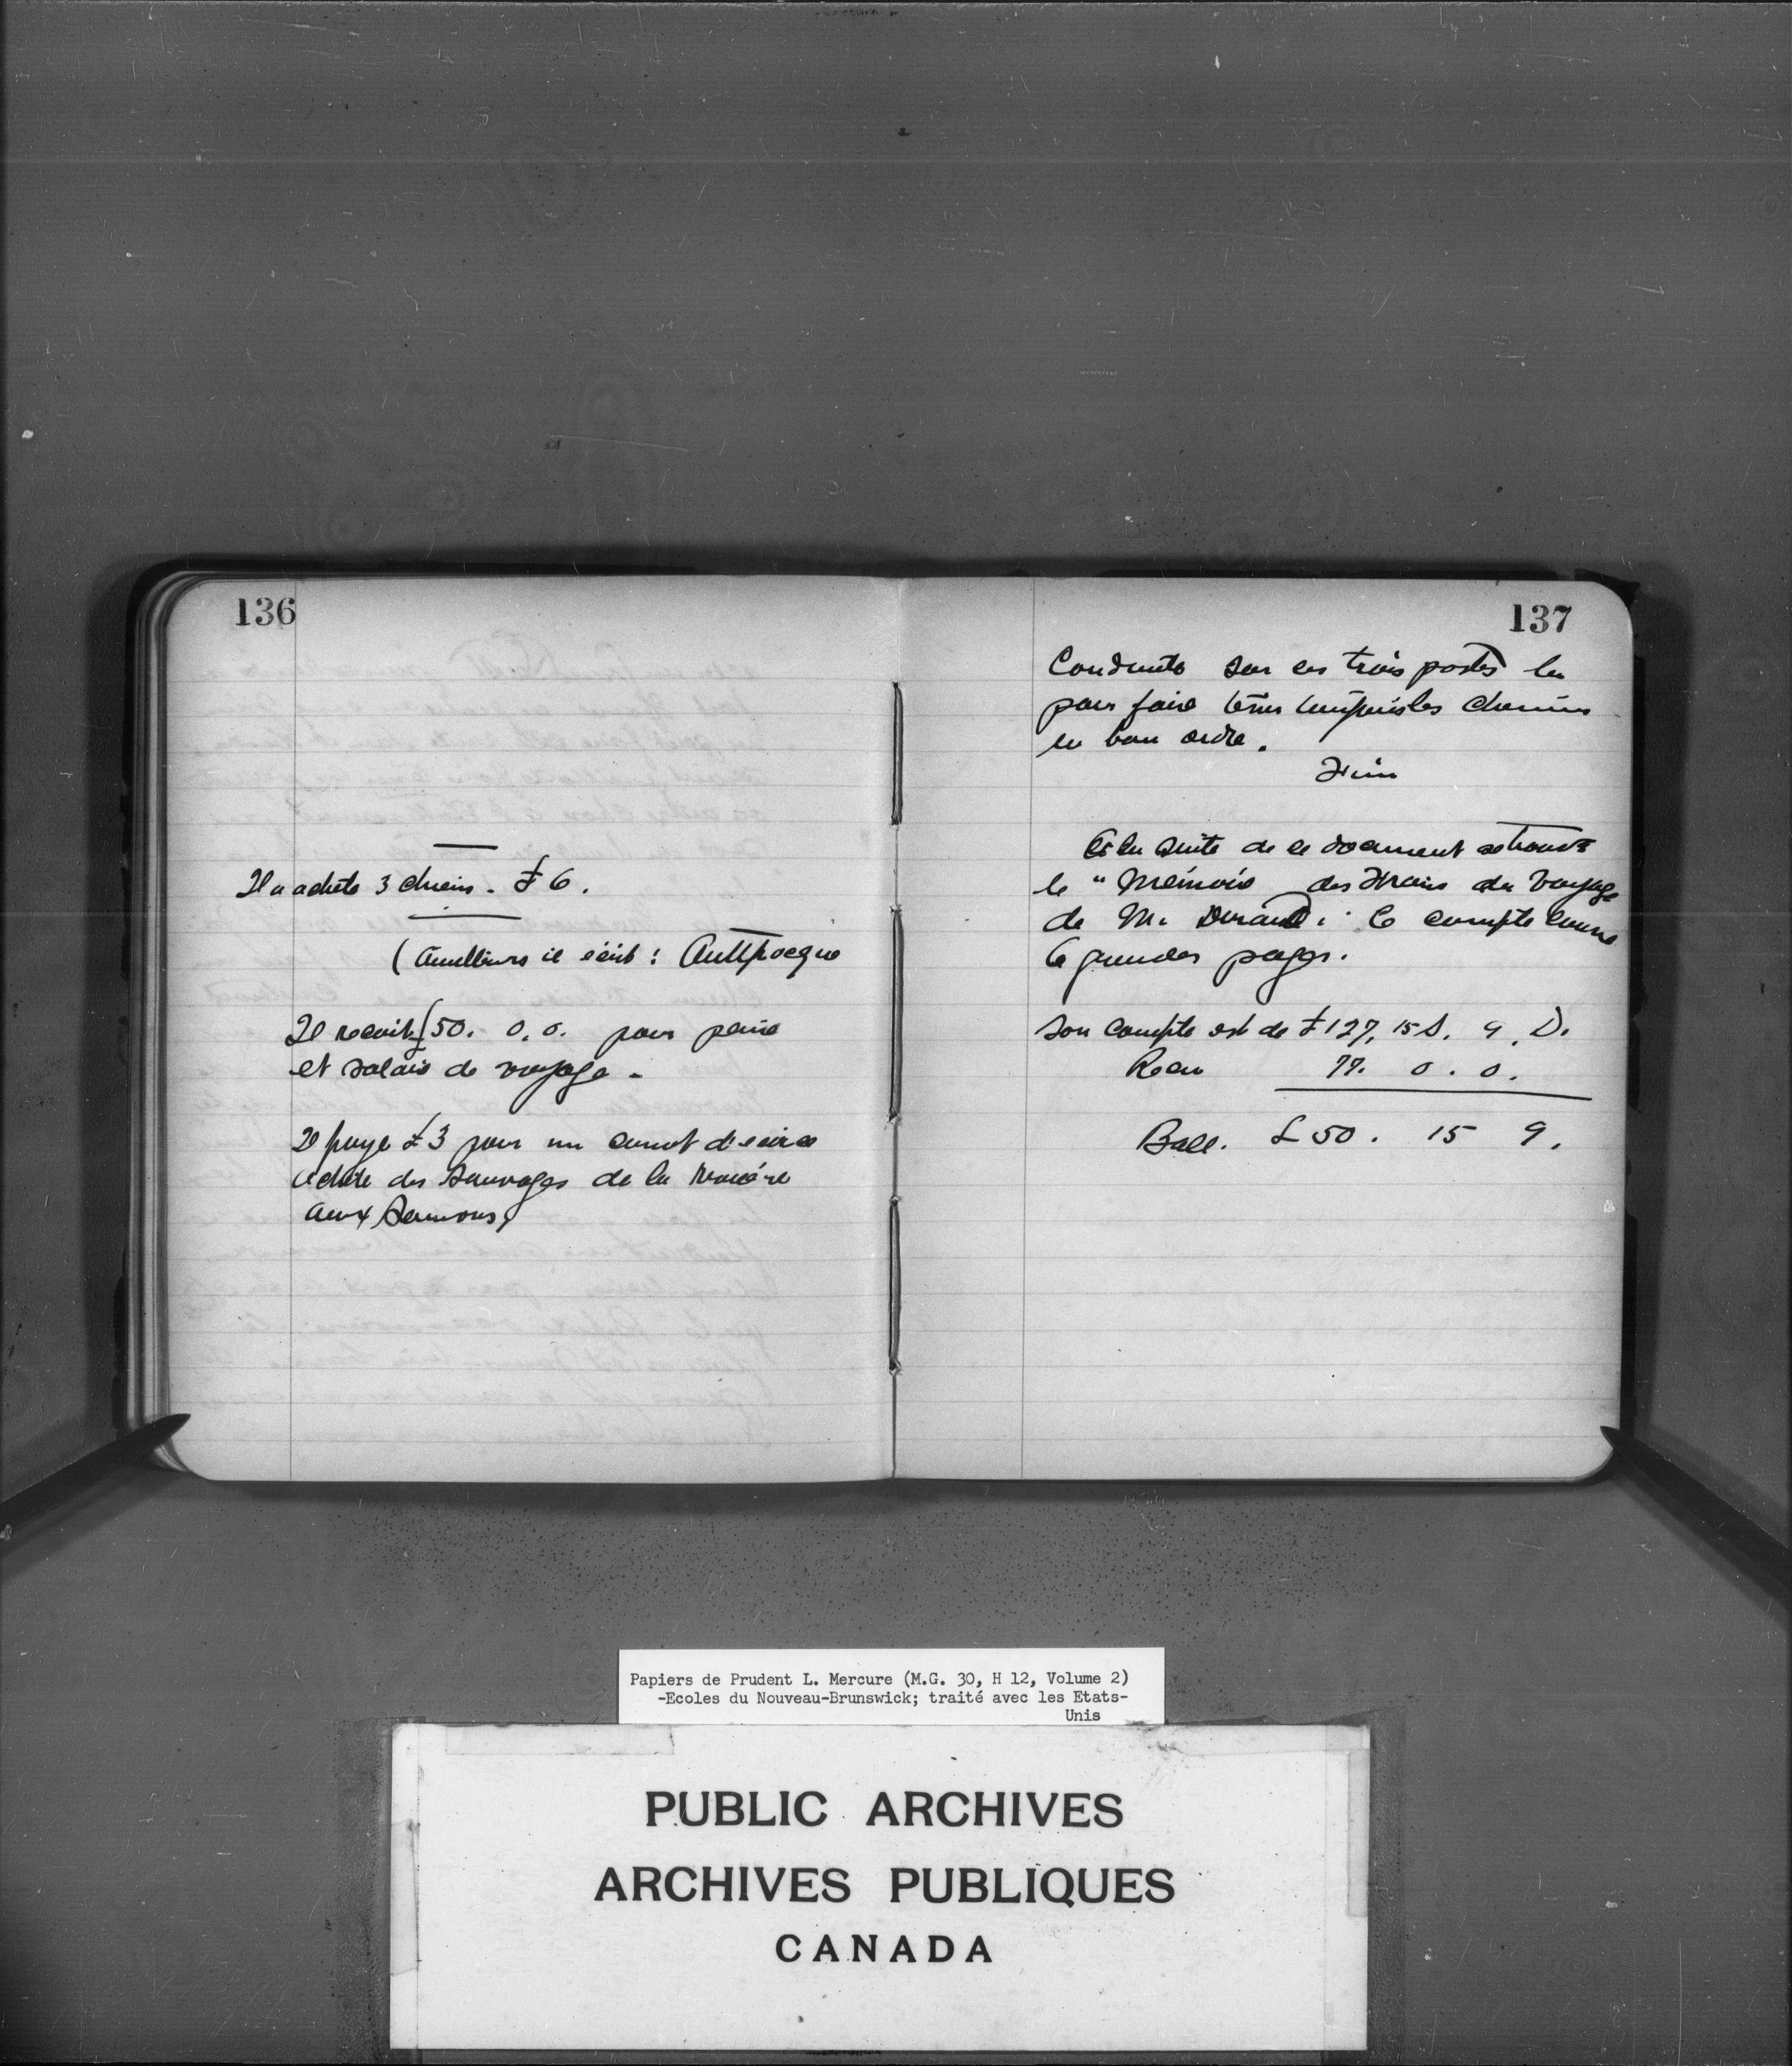 136
Il a acheté 3 chiens. £ 6.
(Ailleurs il écrit : Auttpocque
Il recoit £50. 0. 0. pour peine
et salair de voyage.
Il paye £3 pour un canot d'écorce
acheté des Sauvages de la rivière
aux Saumons,
137
Conduite sur ces trois postes là
pour faire tenir toujours les chemins
en bon ordre.
Fin
A la suite de ce document se trouve
le "Mémoire des Frais du Voyage
de Mr. Durand. Ce compte couvre
6 grandes pages.
Son compte est de £127, 15 S. 9. D.
Recu 77. 0. 0.
Ball. £ 50. 15 9.
Papiers de Prudent L. Mercure (M.G. 30, H 12, Volume 2)
-Ecoles du Nouveau-Brunswick; traité avec les Etats-
Unis
PUBLIC ARCHIVES
ARCHIVES PUBLIQUES
CANADA